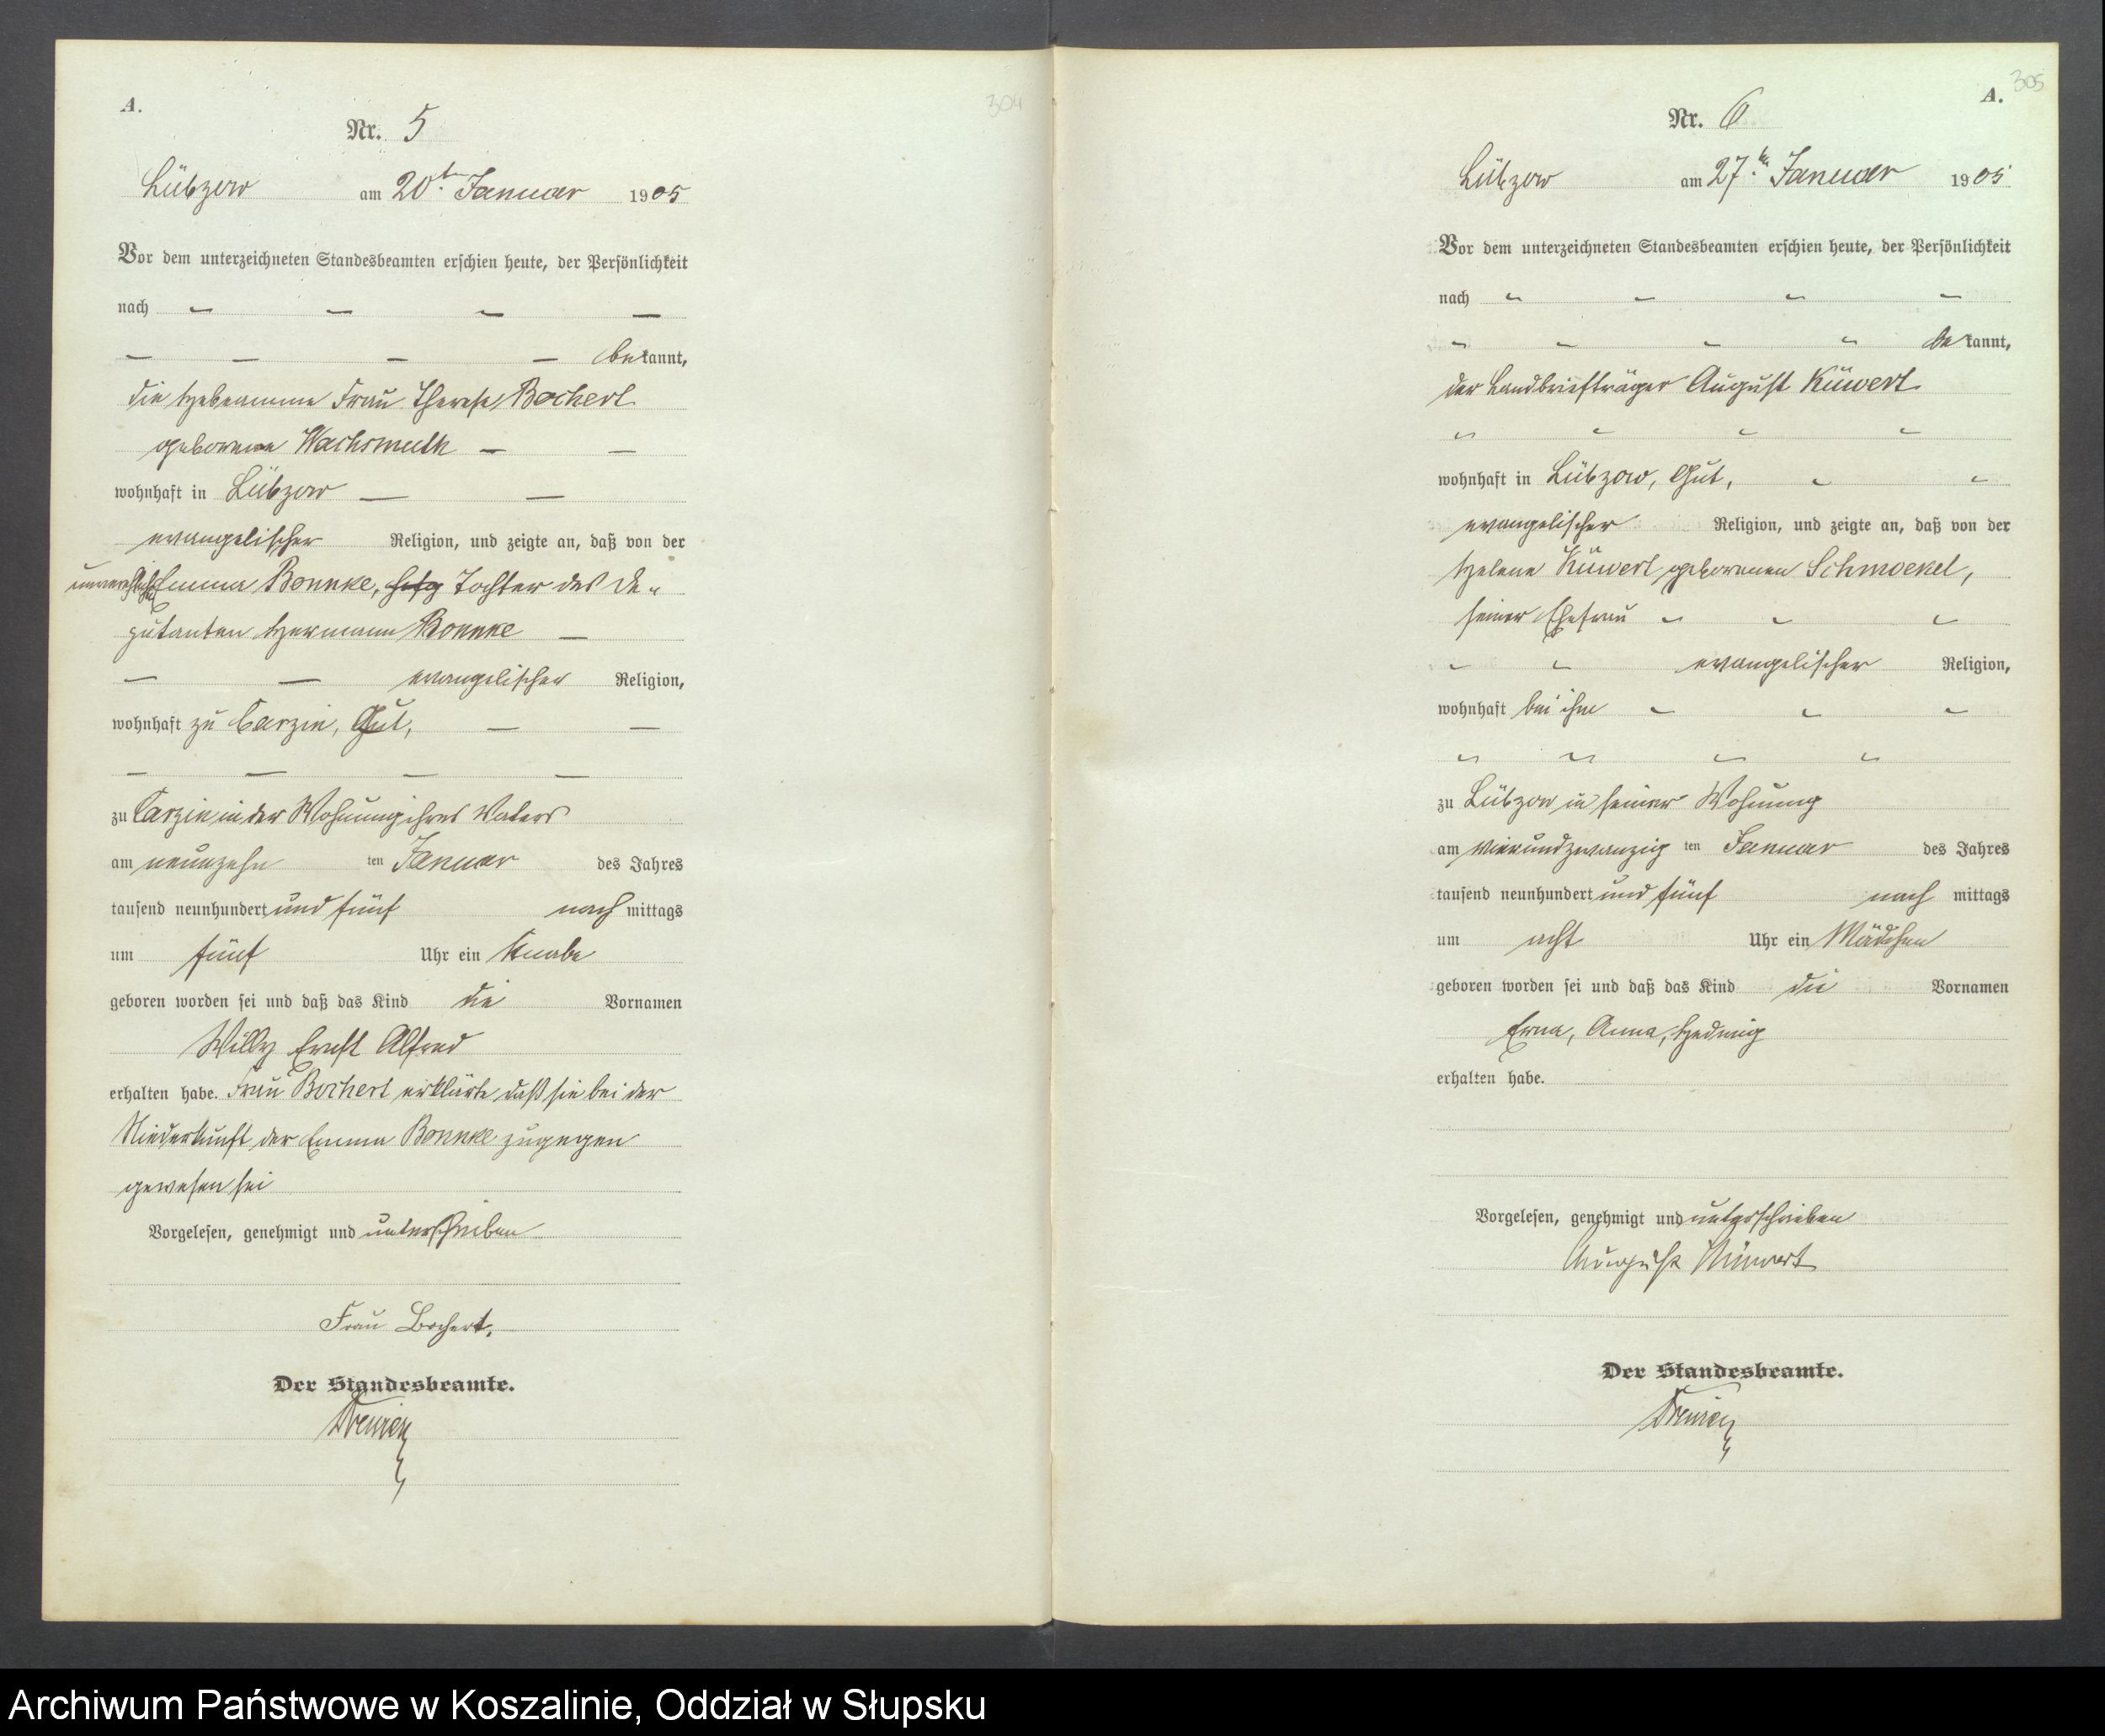 A.
304
Nr. 5
Lübzow am 20ten Januar 1905
Vor dem unterzeichneten Standesbeamten erschien heute, der Persönlichkeit
nach
bekannt,
die Hebeamme Frau Therese Bochert
geborene Wachsmuth
wohnhaft in Lübzow
evangelischer Religion, und zeigte an, daß von der
unverehelichten Emma Bonnke, Tochter des De-
putanten Hermann Bonnke
evangelischer Religion,
wohnhaft zu Carzin, Gut,
zu Carzin in der Wohnung ihres Vaters
am neunzehn ten Januar des Jahres
tausend neunhundert und fünf nach mittags
um fünf Uhr ein Knabe
geboren worden sei und daß das Kind die Vornamen
Willy Ernst Alfred
erhalten habe. Frau Bochert erklärte daß sie bei der
Niederkunft der Emma Bonnke zugegen
gewesen sei
Vorgelesen, genehmigt und unterschrieben
Frau Bochert.
Der Standesbeamte.
A.
305
Nr. 6
Lübzow am 27ten Januar 1905
Vor dem unterzeichneten Standesbeamten erschien heute, der Persönlichkeit
nach
bekannt,
der Landbriefträger August Küwert
wohnhaft in Lübzow, Gut,
evangelischer Religion, und zeigte an, daß von der
Helene Küwert geborenen Schmoekel,
seiner Ehefrau
evangelischer Religion,
wohnhaft bei ihm
zu Lübzow in seiner Wohnung
am vierundzwanzig ten Januar des Jahres
tausend neunhundert und fünf nach mittags
um acht Uhr ein Mädchen
geboren worden sei und daß das Kind die Vornamen
Erna, Anna, Hedwig
erhalten habe.
Vorgelesen, genehmigt und unterschrieben
August Küwert
Der Standesbeamte.
Archiwum Państwowe w Koszalinie, Oddział w Słupsku